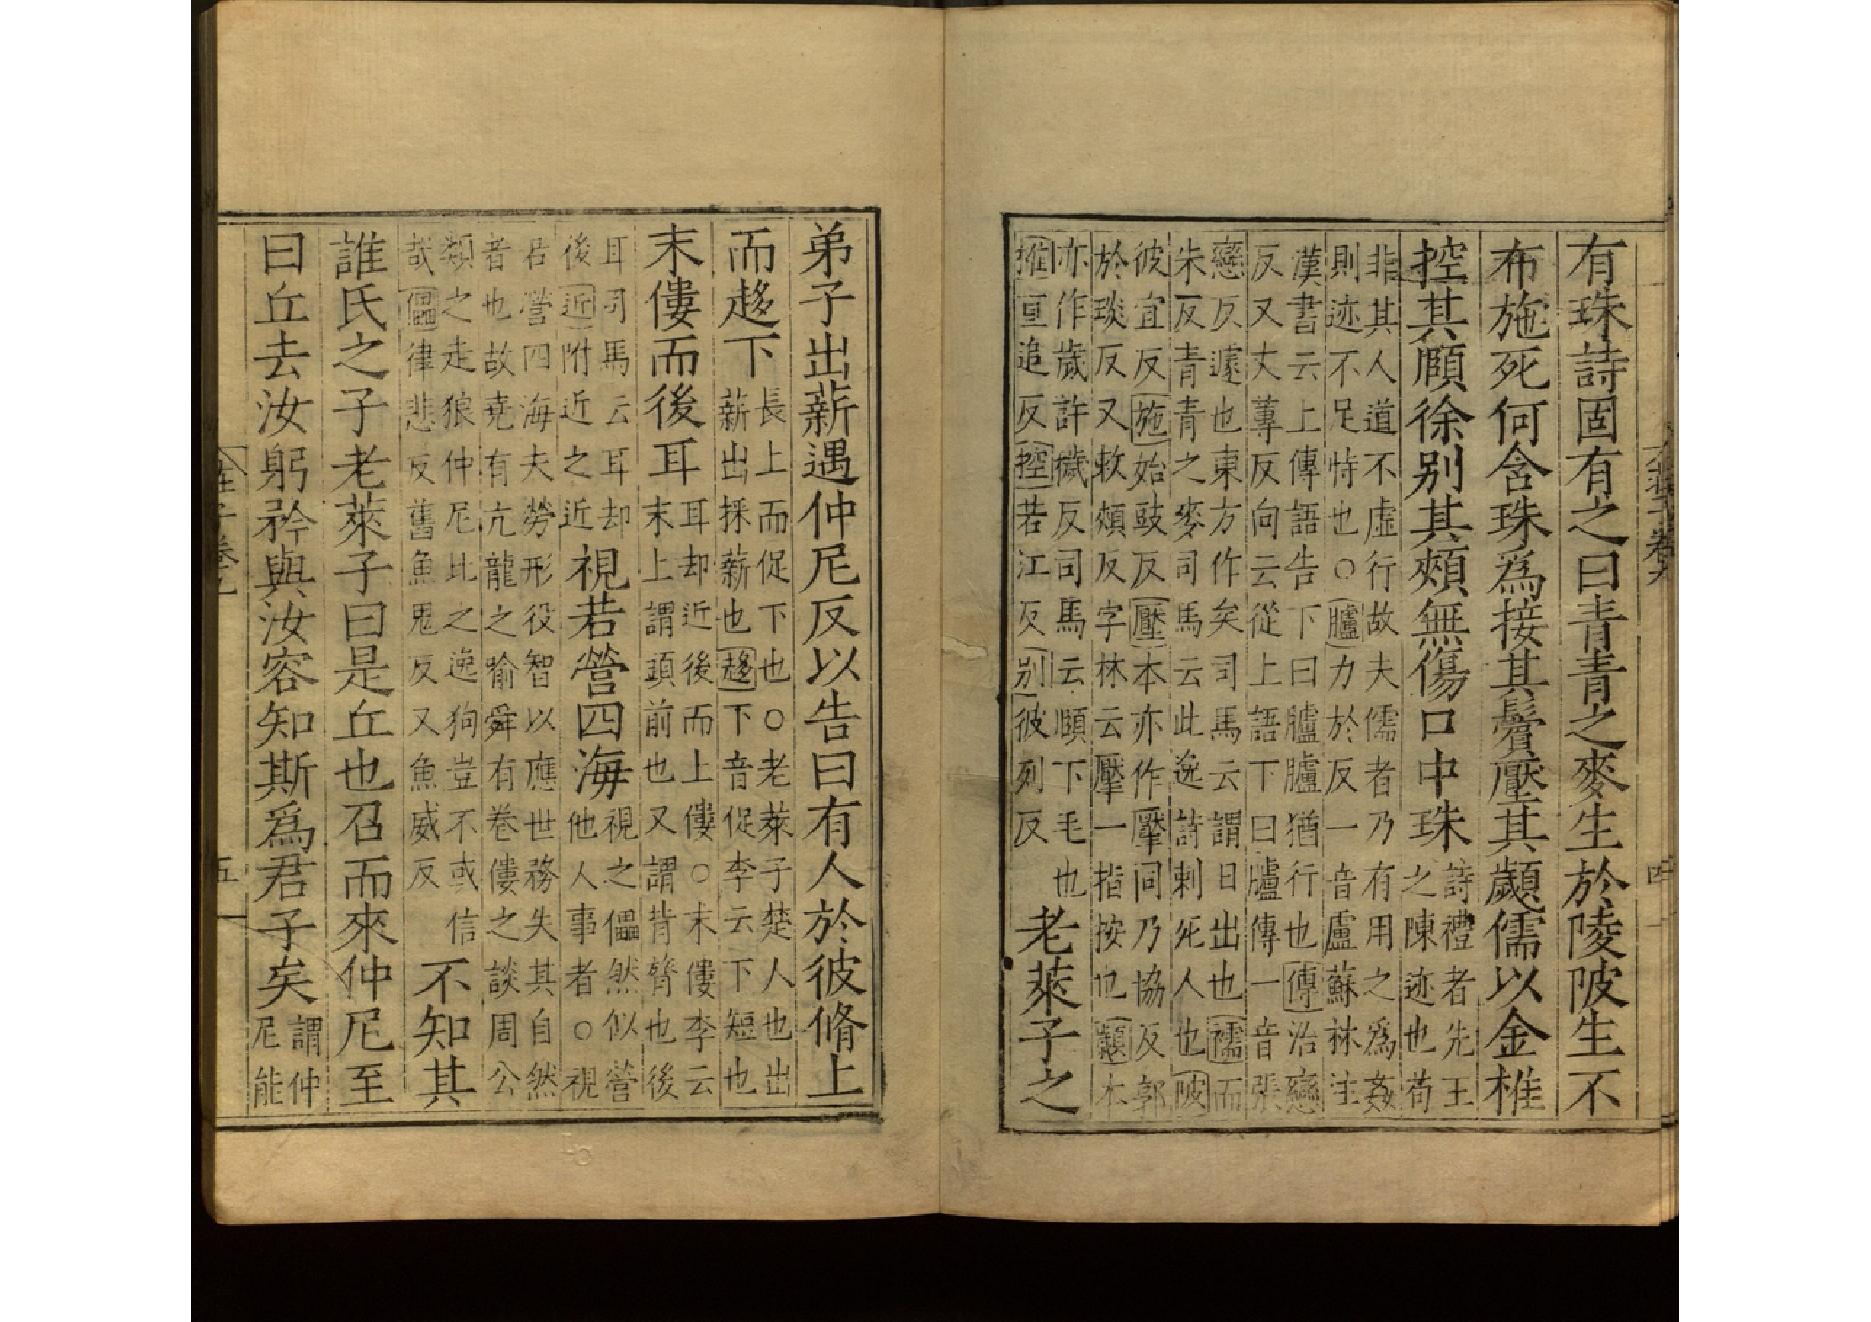 有珠詩固有之曰青青之麥生於陵陂生不
布施死何含珠爲接其鬢壓其顪儒以金椎
控其頤徐别其頰無傷口中珠
詩禮者先王
之陳迹也苟
非其人道不虛行故夫儒者乃有用之為姦
則迹不足恃也○臚力於反一音盧蘇林注
漢書云上傳語告下曰臚臚猶行也傳治戀
反又丈菶反向云從上語下曰臚傳一音張
戀反遽也東方作矣司馬云謂日出也襦而
朱反青青之麥司馬云此逸詩刺死人也陂
彼宜反施始豉反壓本亦作擪同乃協反郭
於琰反又敕頰反字林云擪一指按也顪本
亦作歲許穢反司馬云頤下毛也
推亘追反控若江反别彼列反
老萊子之
弟子出薪遇仲尼反以告曰有人於彼脩上
而趍下
長上而促下也○老萊子楚人也出
薪出採薪也趍下音促李云下下短也
末僂而後耳
耳却近後而上僂○末僂李云
末上謂頭前也又謂背膂也後
耳司馬云耳却
後近附近之近
視若營四海
視之儡然似營
他人事者○視
若營四海夫勞形役智以應世務失其自然
者也故堯有亢龍之喻舜有卷僂之談周公
類之走狼仲尼比之逸狗豈不或信
哉儡律悲反舊魚鬼反又魚威反
不知其
誰氏之子老萊子曰是丘也召而來仲尼至
曰丘去汝躬矜與汝容知斯爲君子矣
謂仲
尼能
五